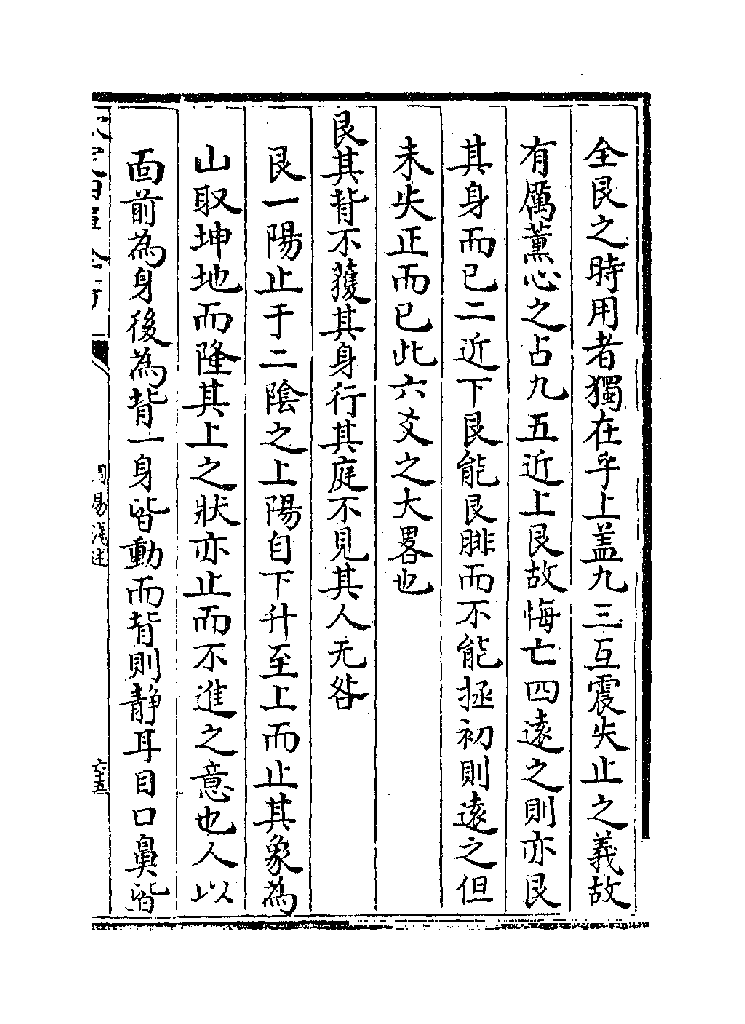 全艮之時用者獨在乎上盖九三互震失止之義故
有厲薰心之占九五近上艮故悔亡四逺之則亦艮
其身而已二近下艮能艮腓而不能拯初則逺之但
未失正而已此六爻之大畧也
艮其背不獲其身行其庭不見其人无咎
艮一陽止于二陰之上陽自下升至上而止其象為
山取坤地而隆其上之狀亦止而不進之意也人以
面前為身後為背一身皆動而背則静耳目口鼻皆
周易淺述